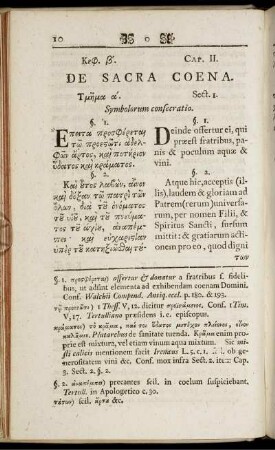 10 ☸ o ☸
Κεφ. β'. CAP. II.
DE SACRA COENA.
Τμῆμα α'. Sect. 1.
Symbolorum consecratio.
§. 1.
Επειτα προσφέρεται
τῷ προεστῶτι ἀδελ-
φῶν ἄρτος, καὶ ποτήριον
ὕδατος καὶ κράματος.
§. 2.
Καὶ οὗτος λαβών, αἶνον
καὶ δόξαν τῷ πατρὶ τῶν
ὅλων, διὰ τοῦ ὀνόματος
τοῦ υἱοῦ, καὶ τοῦ πνεύματος
τοῦ ἁγίου, ἀναπέμ-
πει· καὶ εὐχαριστίαν
ὑπὲρ τοῦ κατηξιῶσθαι
§. 1.
Deinde offertur ei, qui
præest fratribus, pa-
nis & poculum aquæ &
vini.
§. 2.
Atque hic, acceptis (il-
lis), laudem & gloriam ad
Patrem (rerum) universa-
rum, per nomen Filii, &
Spiritus Sancti, sursum
mittit: & gratiarum acti-
onem pro eo, quod digni
των
§. 1. προσφέρεται) offertur & donatur a fratribus s. fideli-
bus, ut adsint elementa ad exhibendam coenam Domini.
Conf. Walchii Compend. Antiq. eccl. p. 180. & 195.
V, 17. Tertulliano præsidens i. e. episcopus.
calamus. Plutarchus de sanitate tuenda. Κρᾶμα enim pro-
prie est mixtum, vel etiam vinum aqua mixtum. Sic mi-
sti calicis mentionem facit Irenæus L. 5. c. 1. ob ge-
nerositatem vini &c. Conf. omnino mox infra Sect. 2. item Cap.
3. Sect. 2. §. 2.
§. 2. ἀναπέμπει) precantes scil. in coelum suspiciebant.
Tertull. in Apologetico c. 30.